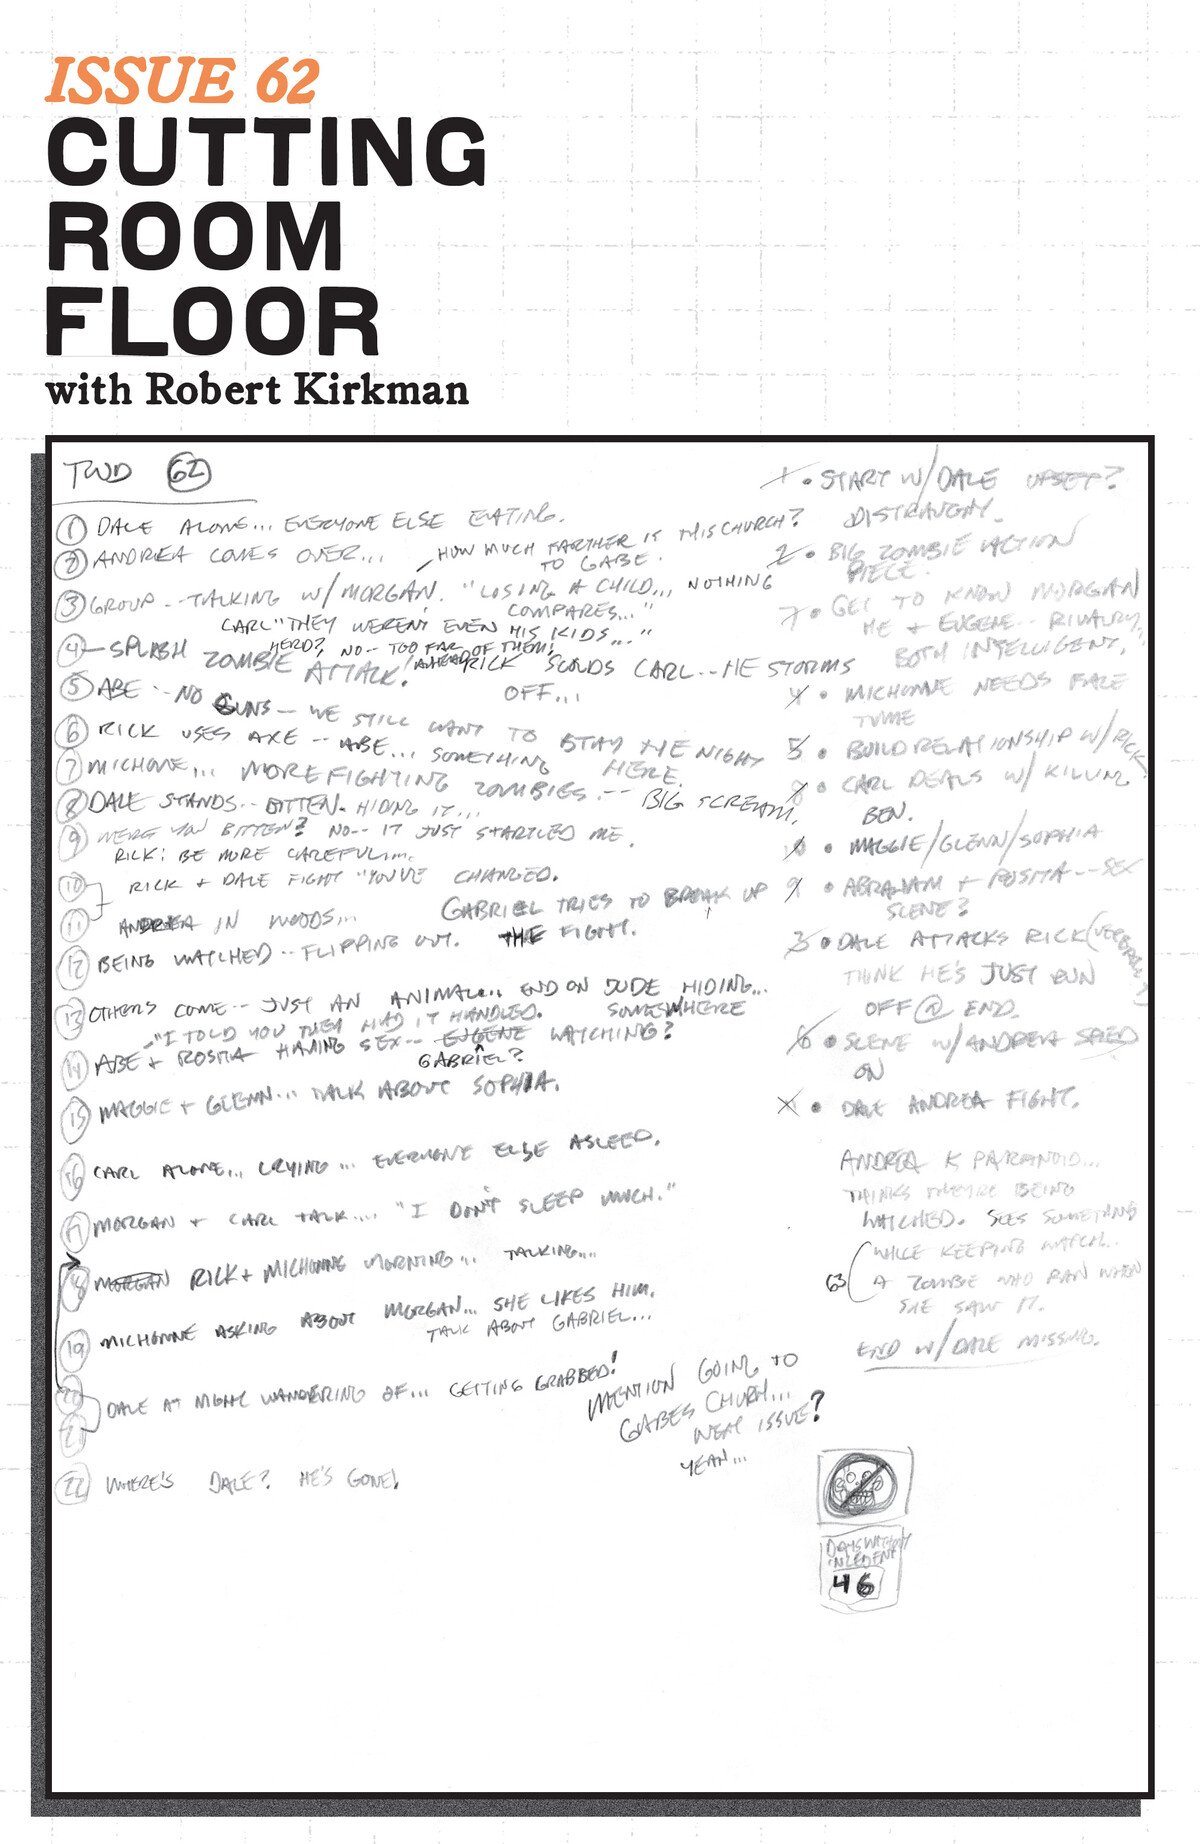 ISSUE 62
CUTTING
ROOM
FLOOR
with Robert Kirkman
TWD 62
1 DALE ALONE... EVERYONE ELSE EATING.
2 ANDREA COMES OVER...
HOW MUCH FARTHER IS THIS CHURCH?
TO GABE.
3 GROUP -- TALKING W/ MORGAN. "LOSING A CHILD... NOTHING
COMPARES..."
CARL "THEY WEREN'T EVEN HIS KIDS..."
4 SPLASH ZOMBIE ATTACK!
HERD? NO-- TOO FAR
AHEAD OF THEM.
RICK SCOLDS CARL -- HE STORMS
OFF...
5 ABE -- NO GUNS -- WE STILL WANT TO STAY THE NIGHT
HERE.
6 RICK USES AXE -- ABE... SOMETHING
7 MICHONE... MORE FIGHTING ZOMBIES. -- BIG SCREAM.
8 DALE STANDS -- BITTEN. HIDING IT...
9 WERE YOU BITTEN? NO-- IT JUST STARTLED ME.
RICK: BE MORE CAREFUL....
10 RICK + DALE FIGHT "YOU'VE CHANGED.
GABRIEL TRIES TO BREAK UP
THE FIGHT.
11 ANDREA IN WOODS...
12 BEING WATCHED -- FLIPPING OUT.
13 OTHERS COME -- JUST AN ANIMAL... END ON DUDE HIDING...
SOMEWHERE
"I TOLD YOU THEY HAD IT HANDLED.
14 ABE + ROSITA HAVING SEX -- EUGENE WATCHING?
GABRIEL?
15 MAGGIE + GLENN... TALK ABOUT SOPHIA.
16 CARL ALONE... CRYING... EVERYONE ELSE ASLEEP.
17 MORGAN + CARL TALK.... "I DON'T SLEEP MUCH."
18 MORGAN RICK + MICHONNE MORNING... TALKING...
19 MICHONNE ASKING ABOUT MORGAN... SHE LIKES HIM.
TALK ABOUT GABRIEL...
20
21 DALE AT NIGHT WANDERING OF... GETTING GRABBED!
MENTION GOING TO
GABES CHURH...
NEXT ISSUE?
YEAH...
22 WHERE'S DALE? HE'S GONE!
1 • START W/ DALE UPSET?
DISTRAUGHT.
2 • BIG ZOMBIE ACTION
PIECE.
7 • GET TO KNOW MORGAN
HE + EUGENE -- RIVALRY...
BOTH INTELLIGENT.
4 • MICHONNE NEEDS FACE
TIME
5 • BUILD RELATIONSHIP W/ RICK.
8 • CARL DEALS W/ KILLING
BEN.
• MAGGIE/GLENN/SOPHIA
9 • ABRAHAM + ROSITA -- SEX
SCENE?
3 • DALE ATTACKS RICK (VERBALLY)
THINK HE'S JUST RUN
OFF @ END.
6 • SCENE W/ ANDREA SPIED
ON
• DALE ANDREA FIGHT.
ANDREA PARANOID...
THINKS THEY'RE BEING
WATCHED. SEES SOMETHING
WHILE KEEPING WATCH..
63 A ZOMBIE WHO RAN WHEN
SHE SAW IT.
END W/ DALE MISSING.
DAYS WITHOUT
INCEDENT
46